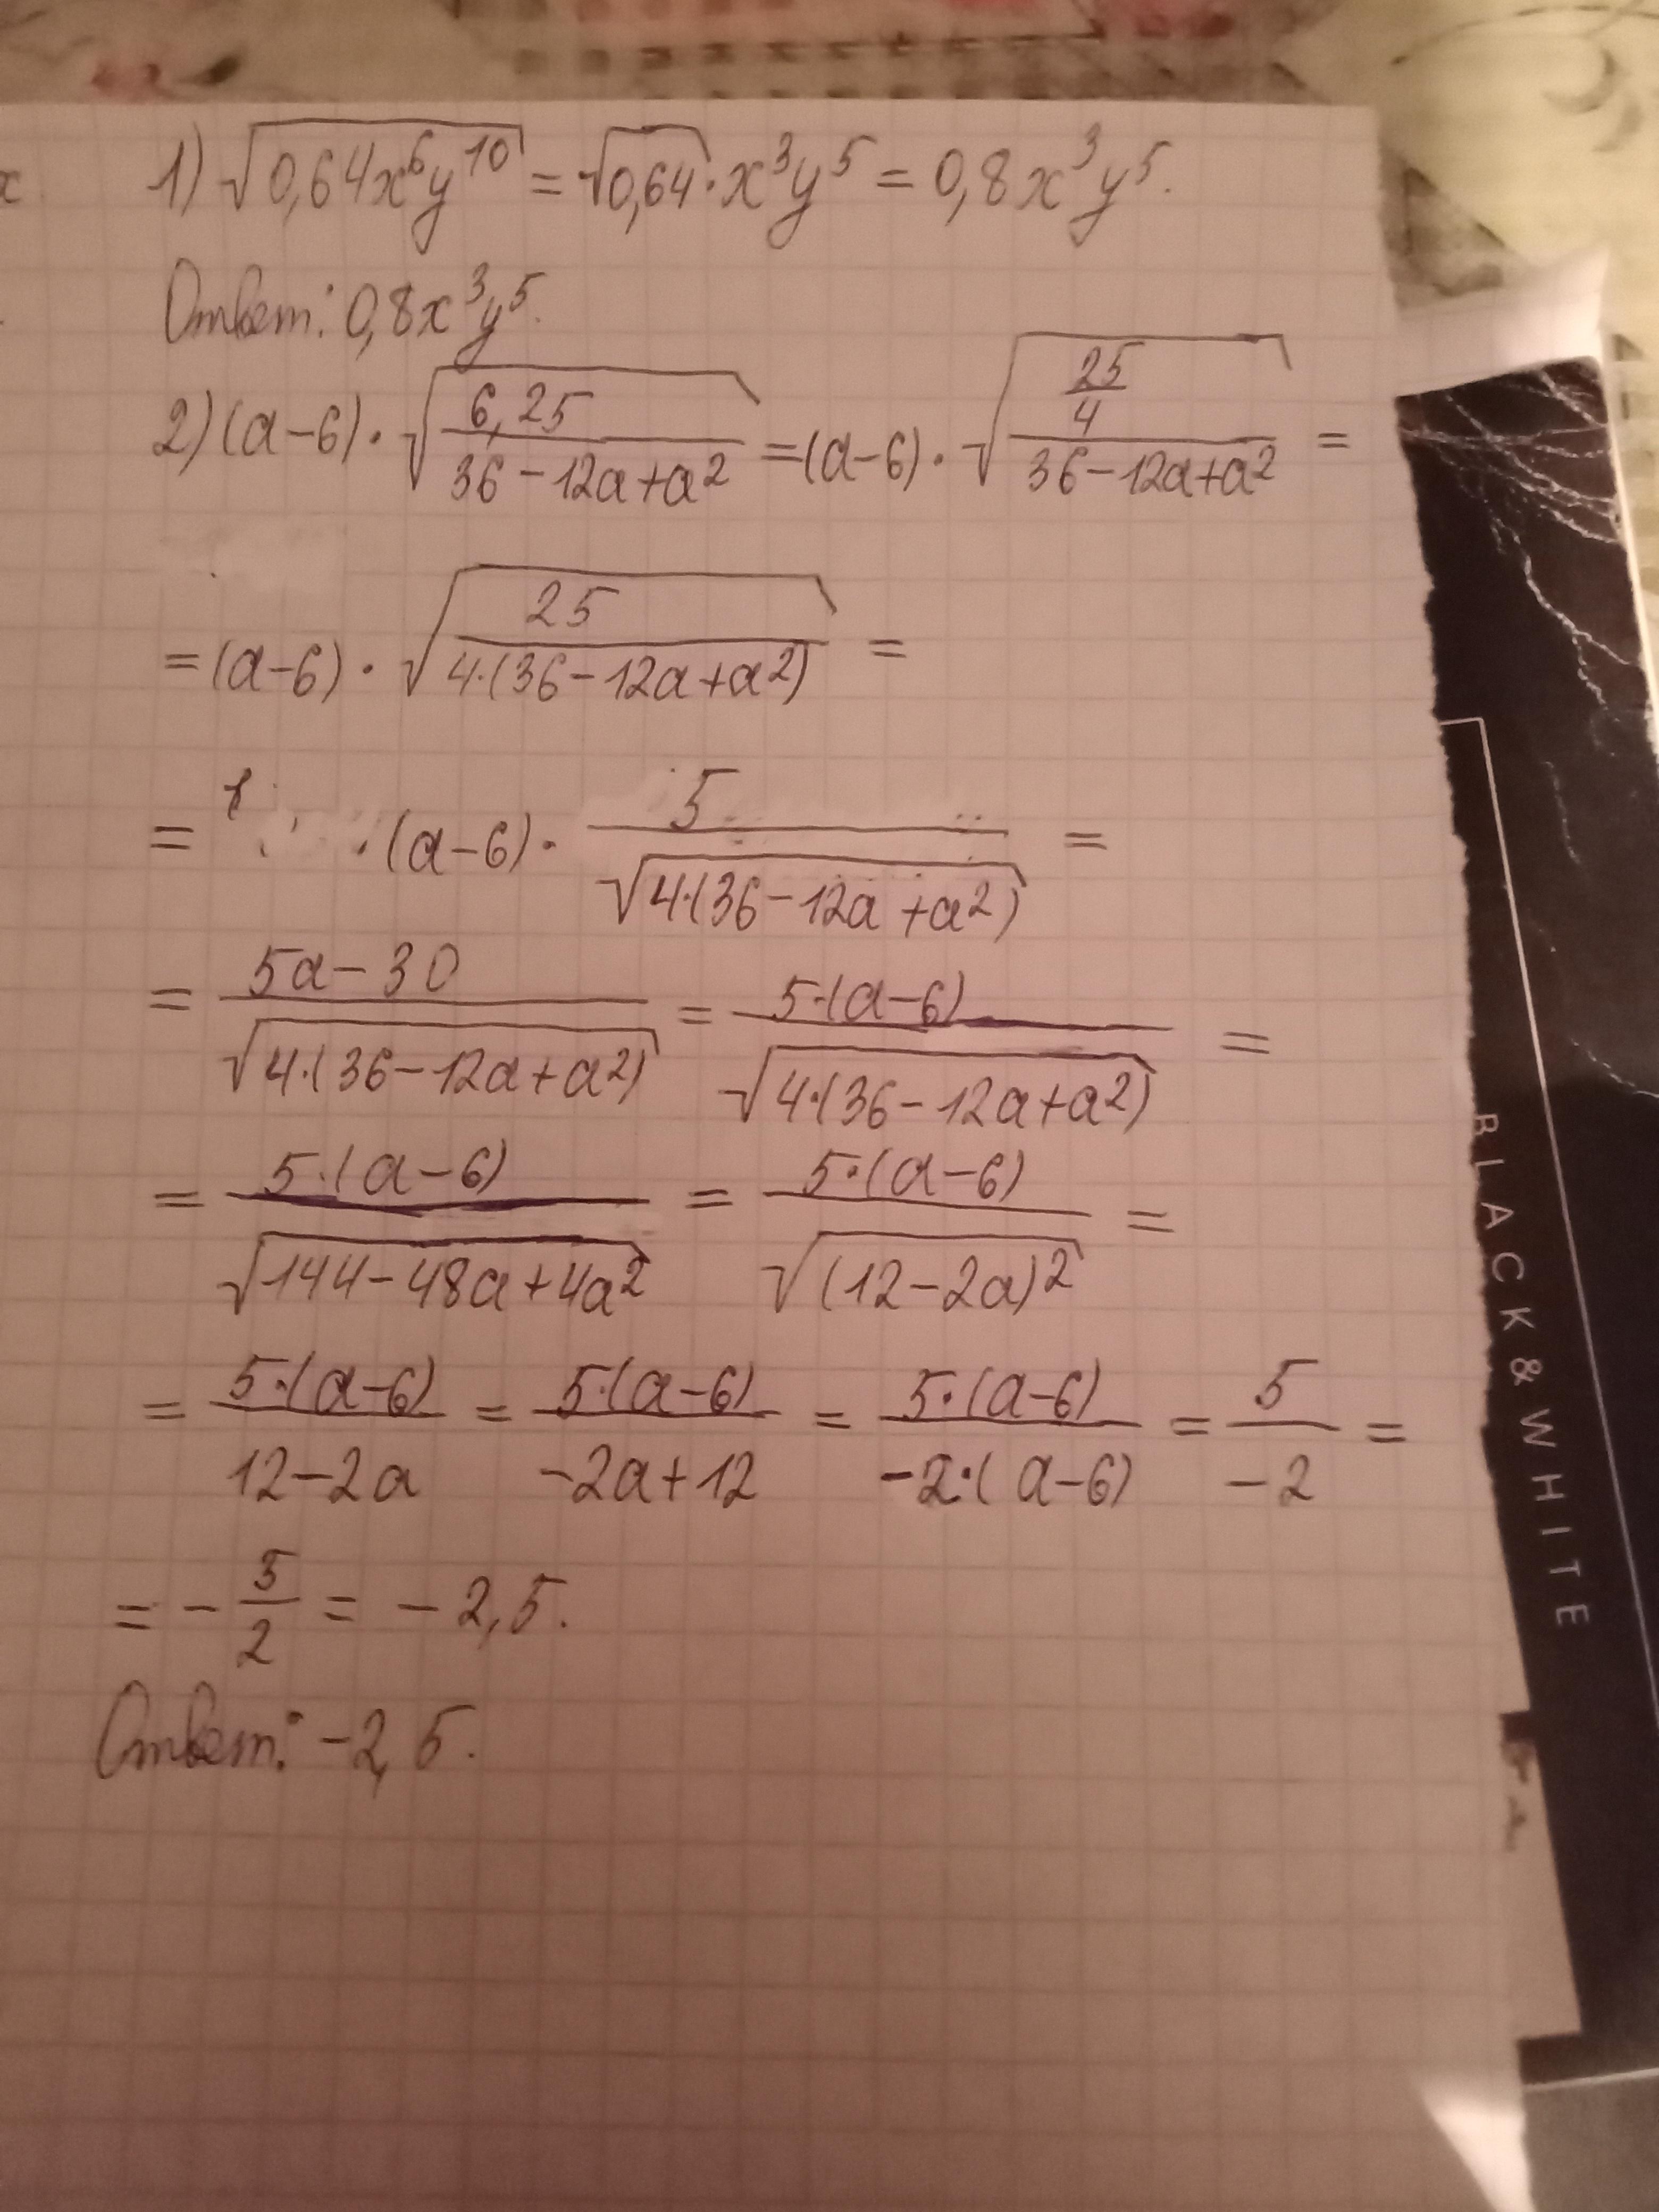 x.
1) √(0,64x⁶y¹⁰) = √0,64 · x³y⁵ = 0,8x³y⁵.
Ответ: 0,8x³y⁵.
2) (a-6) · √(6,25/(36-12a+a²)) = (a-6) · √((25/4)/(36-12a+a²)) =
= (a-6) · √(25/(4·(36-12a+a²))) =
= · (a-6) · 5/√(4·(36-12a+a²)) =
= (5a-30)/√(4·(36-12a+a²)) = 5·(a-6)/√(4·(36-12a+a²)) =
= 5·(a-6)/√(144-48a+4a²) = 5·(a-6)/√((12-2a)²) =
= 5·(a-6)/(12-2a) = 5·(a-6)/(-2a+12) = 5·(a-6)/(-2·(a-6)) = 5/(-2) =
= -5/2 = -2,5.
Ответ: -2,5.
BLACK & WHITE